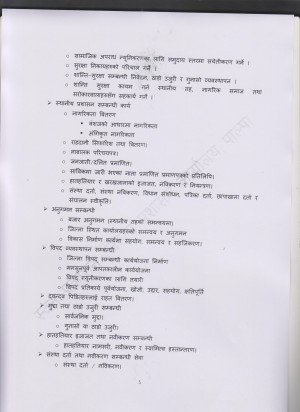 ○ सामाजिक अपराध न्यूनिकरणका लागि समुदाय स्तरमा सचेतीकरण गर्ने ।
○ सुरक्षा निकायहरुको परिचालन गर्ने ।
○ शान्ति-सुरक्षा सम्बन्धी निवेदन, ठाडो उजुरी र गुनासो व्यवस्थापन ।
○ शान्ति सुरक्षा कायम गर्न स्थानीय तह, नागरिक समाज तथा
सरोकारवालाहरुसँग सहकार्य गर्ने ।
➢ स्थानीय प्रशासन सम्बन्धी कार्य
○ नागरिकता वितरण
▪ वंशजको आधारमा नागरिकता
▪ अंगिकृत नागरिकता
○ राहदानी सिफारिस तथा वितरण।
○ नाबालक परिचयपत्र।
○ जनजाती/दलित प्रमाणित।
○ साबिकमा जारी भएका नाता प्रमाणित प्रमाणपत्रको प्रतिलिपि।
○ हातहतियार र खरखजानाको इजाजत, नविकरण र नियन्त्रण।
○ संस्था दर्ता, संस्था नविकरण, विधान संशोधन, पत्रिका दर्ता, छापाखाना दर्ता र
संचालन स्वीकृति।
➢ अनुगमन सम्बन्धी
○ बजार अनुगमन (स्थानीय तहको समन्वयमा)
○ जिल्ला स्थित कार्यालयहरुको समन्वय र अनुगमन
○ विकास निर्माण कार्यमा सहयोग, समन्वय र सहजिकरण।
➢ विपद व्यवस्थापन सम्बन्धी
○ जिल्ला विपद् सम्बन्धी कार्ययोजना निर्माण
○ मनसुनपूर्व आपतकालीन कार्ययोजना
○ विपद न्यूनीकरणका लागि तयारी
○ विपद प्रतिकार्य पूर्वयोजना, खोजी, उद्दार, सहयोग, क्षतिपूर्ति
➢ द्वन्द्व पिडितहरुलाई राहत वितरण।
➢ मुद्दा तथा ठाडो उजुरी सम्बन्धी
○ सार्वजनिक मुद्दा।
○ गुनासो वा ठाडो उजुरी।
➢ हातहतियार इजाजत तथा नवीकरण सम्बन्धी
○ हातहतियार नामसारी, नवीकरण र स्वामित्व हस्तान्तरण।
➢ संस्था दर्ता तथा नवीकरण सम्बन्धी सेवा
○ संस्था दर्ता / नविकरण।